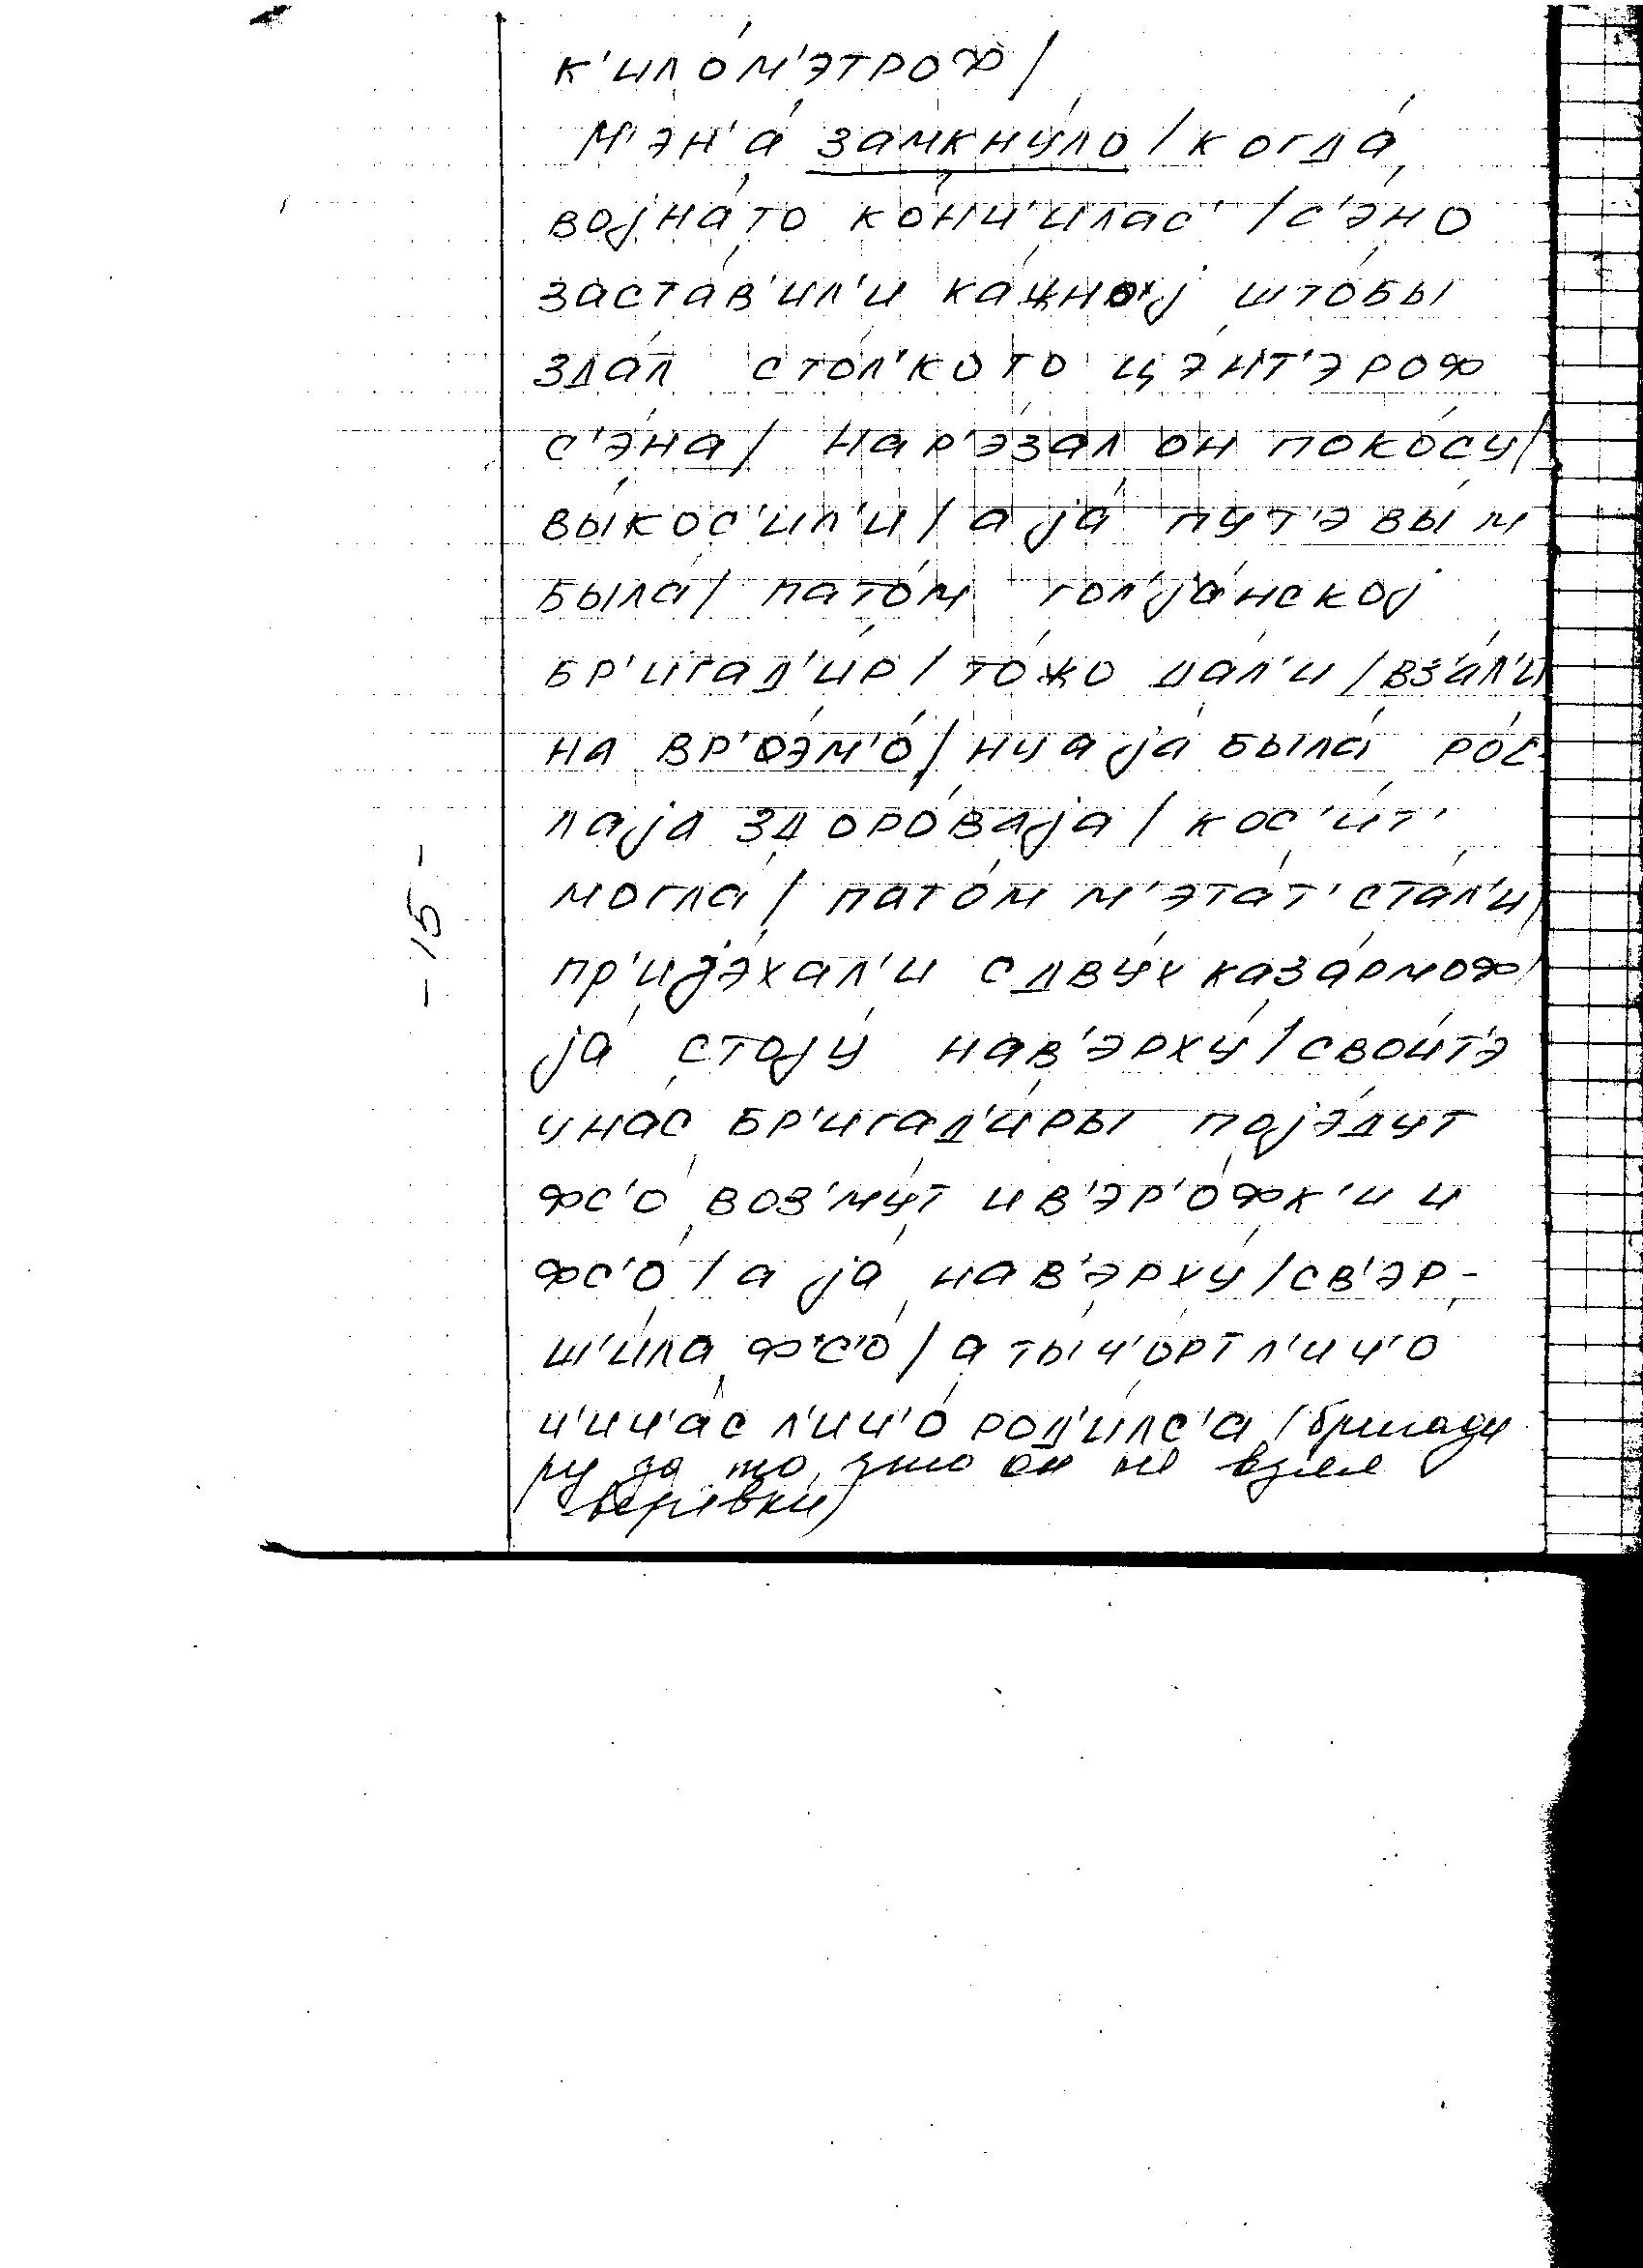 к'ило́м'э́троф/
М'эн'а́ замкну́ло/когда́
војна́то ко́нч'илас'/с'э́но
заста́в'ил'и ка́жној што́бы
здал сто́л'кото цэ́нт'эроф
с'э́на/ нар'э́зал он поко́су/
вы́кос'ил'и/а ја́ пут'эвы́м
была́/ пато́м гол'ја́нској
бр'игад'и́р/то́жо да́л'и/вз'а́л'и
на вр'э́м'о/ну а ја́ была́ ро́с
лаја здоро́ваја/кос'и́т'
могла́/пато́м м'эта́т' ста́л'и/
пр'ијэ́хал'и с двух каза́рмоф/
ја́ стоју́ нав'эрху́/своит'э
у нас бр'игад'и́ры појэ́дут
фс'о́ воз'му́т и в'эр'о́фк'и и
фс'о́/а ја́ нав'эрху́/св'эр-
ш'и́ла фс'о́/а ты ч'орт л'и ч'о
ч'ич'а́с л'и ч'о́ род'и́лс'а/(бригади
ру за то, что он не взял
веревки)
-15-